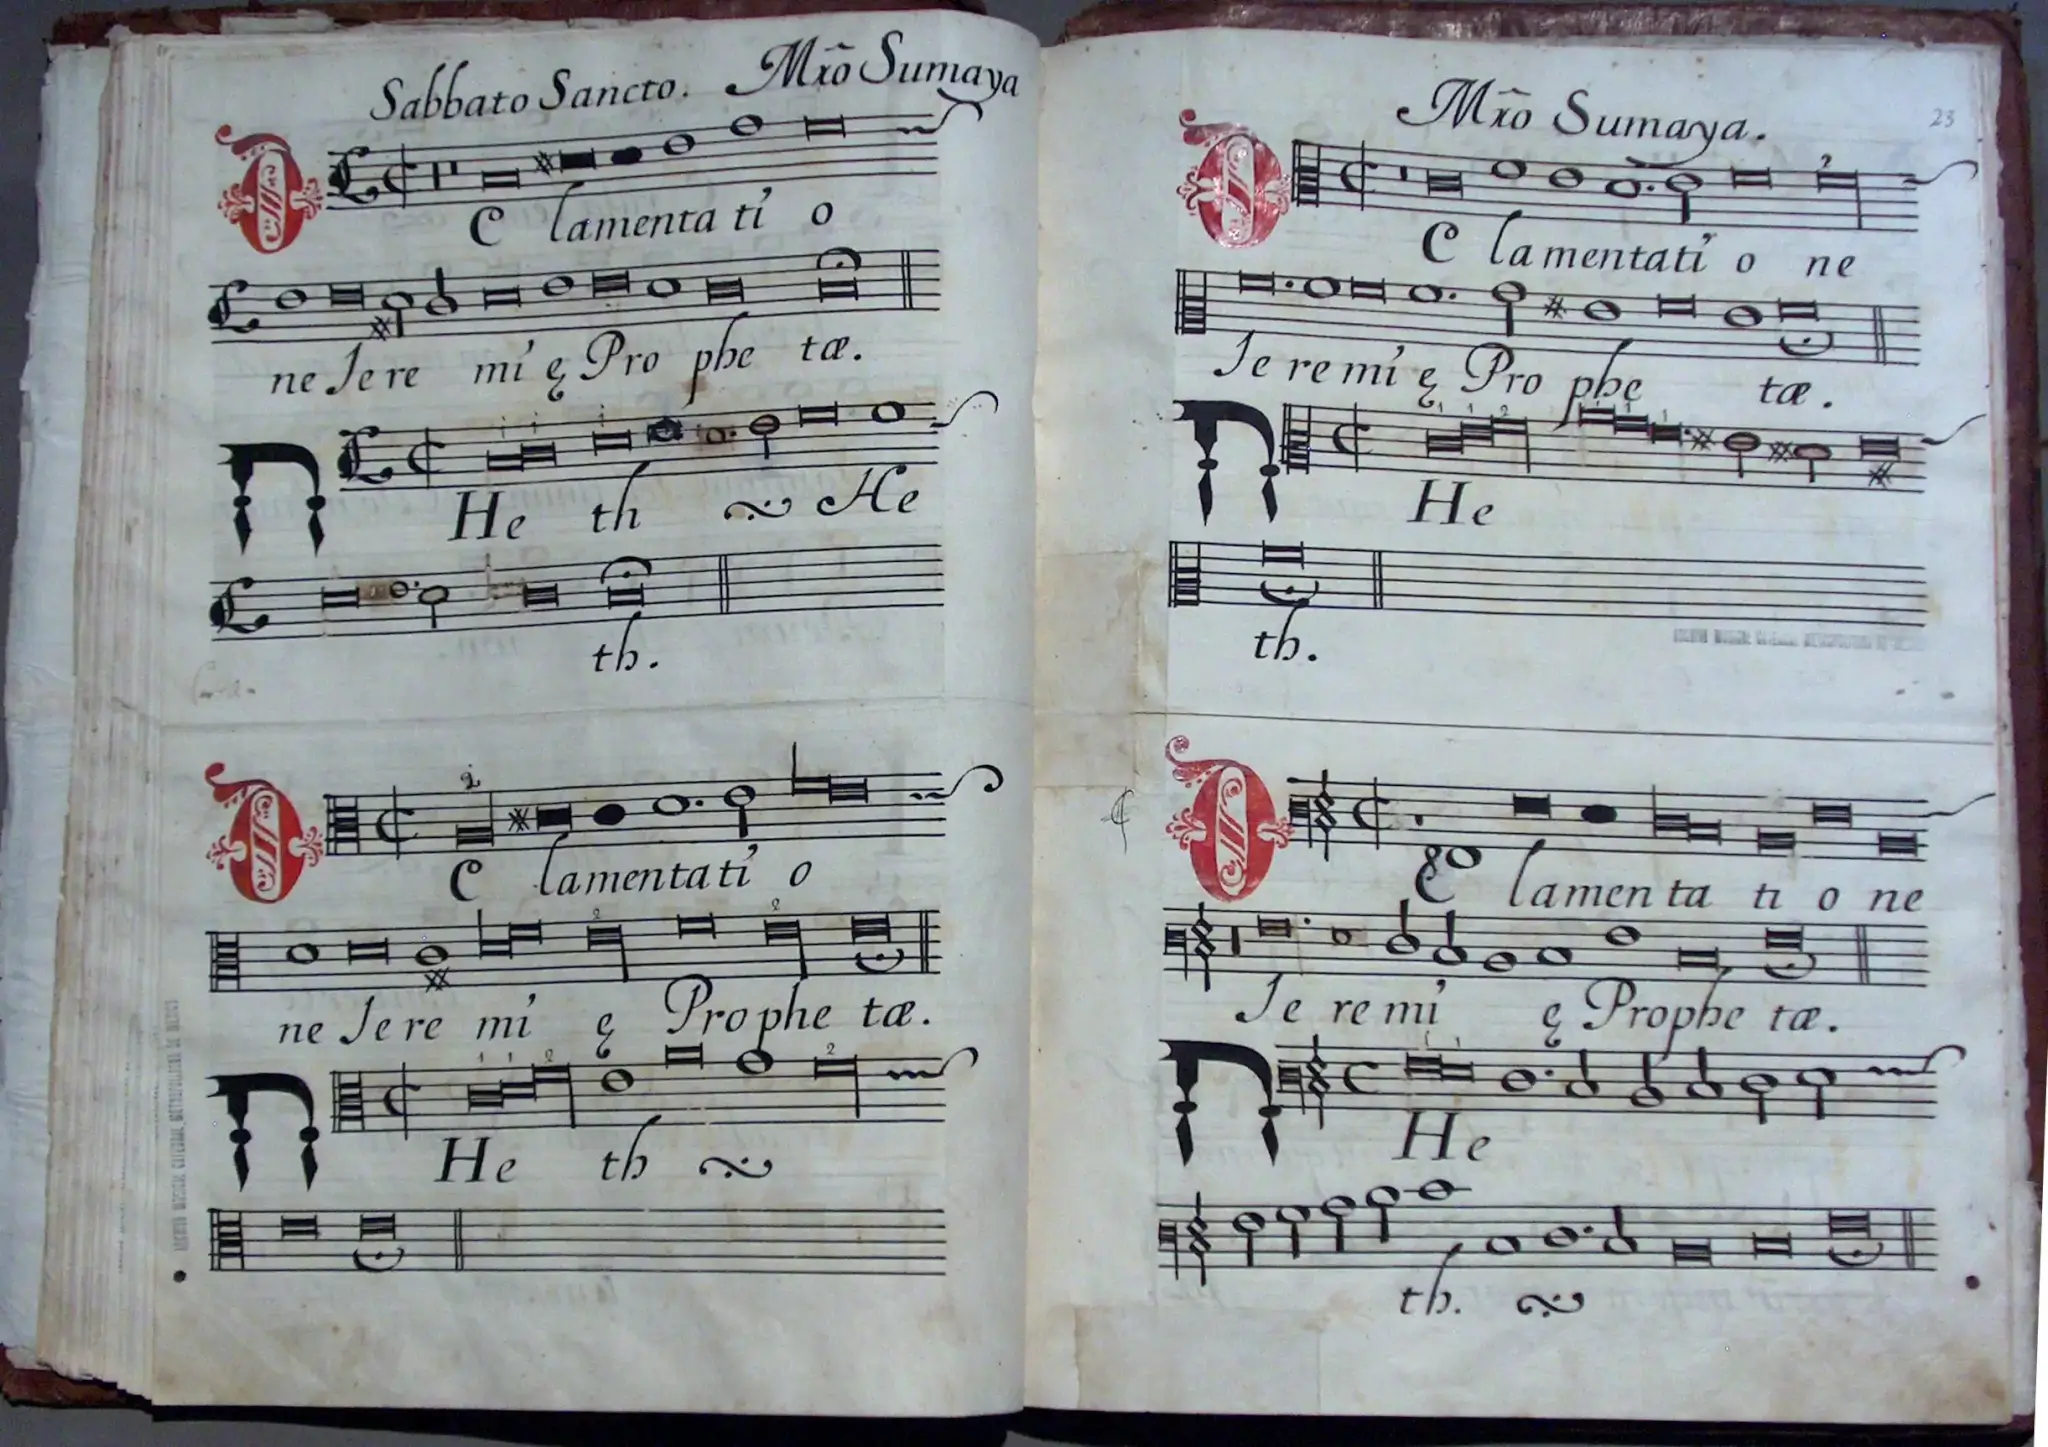 Sabbato Sancto. Mrõ Sumaya
DE lamentati o
ne Jere mi ę Pro phe tæ.
ח He th He
th.
DE lamentati o
ne Jere mi ę Prophe tæ.
ח He th
Mrõ Sumaya. 23
DE lamentati o ne
Jeremi ę Pro phe tæ.
ח He
th.
DE lamenta ti o ne
Je remi ę Prophe tæ.
ח He
th.